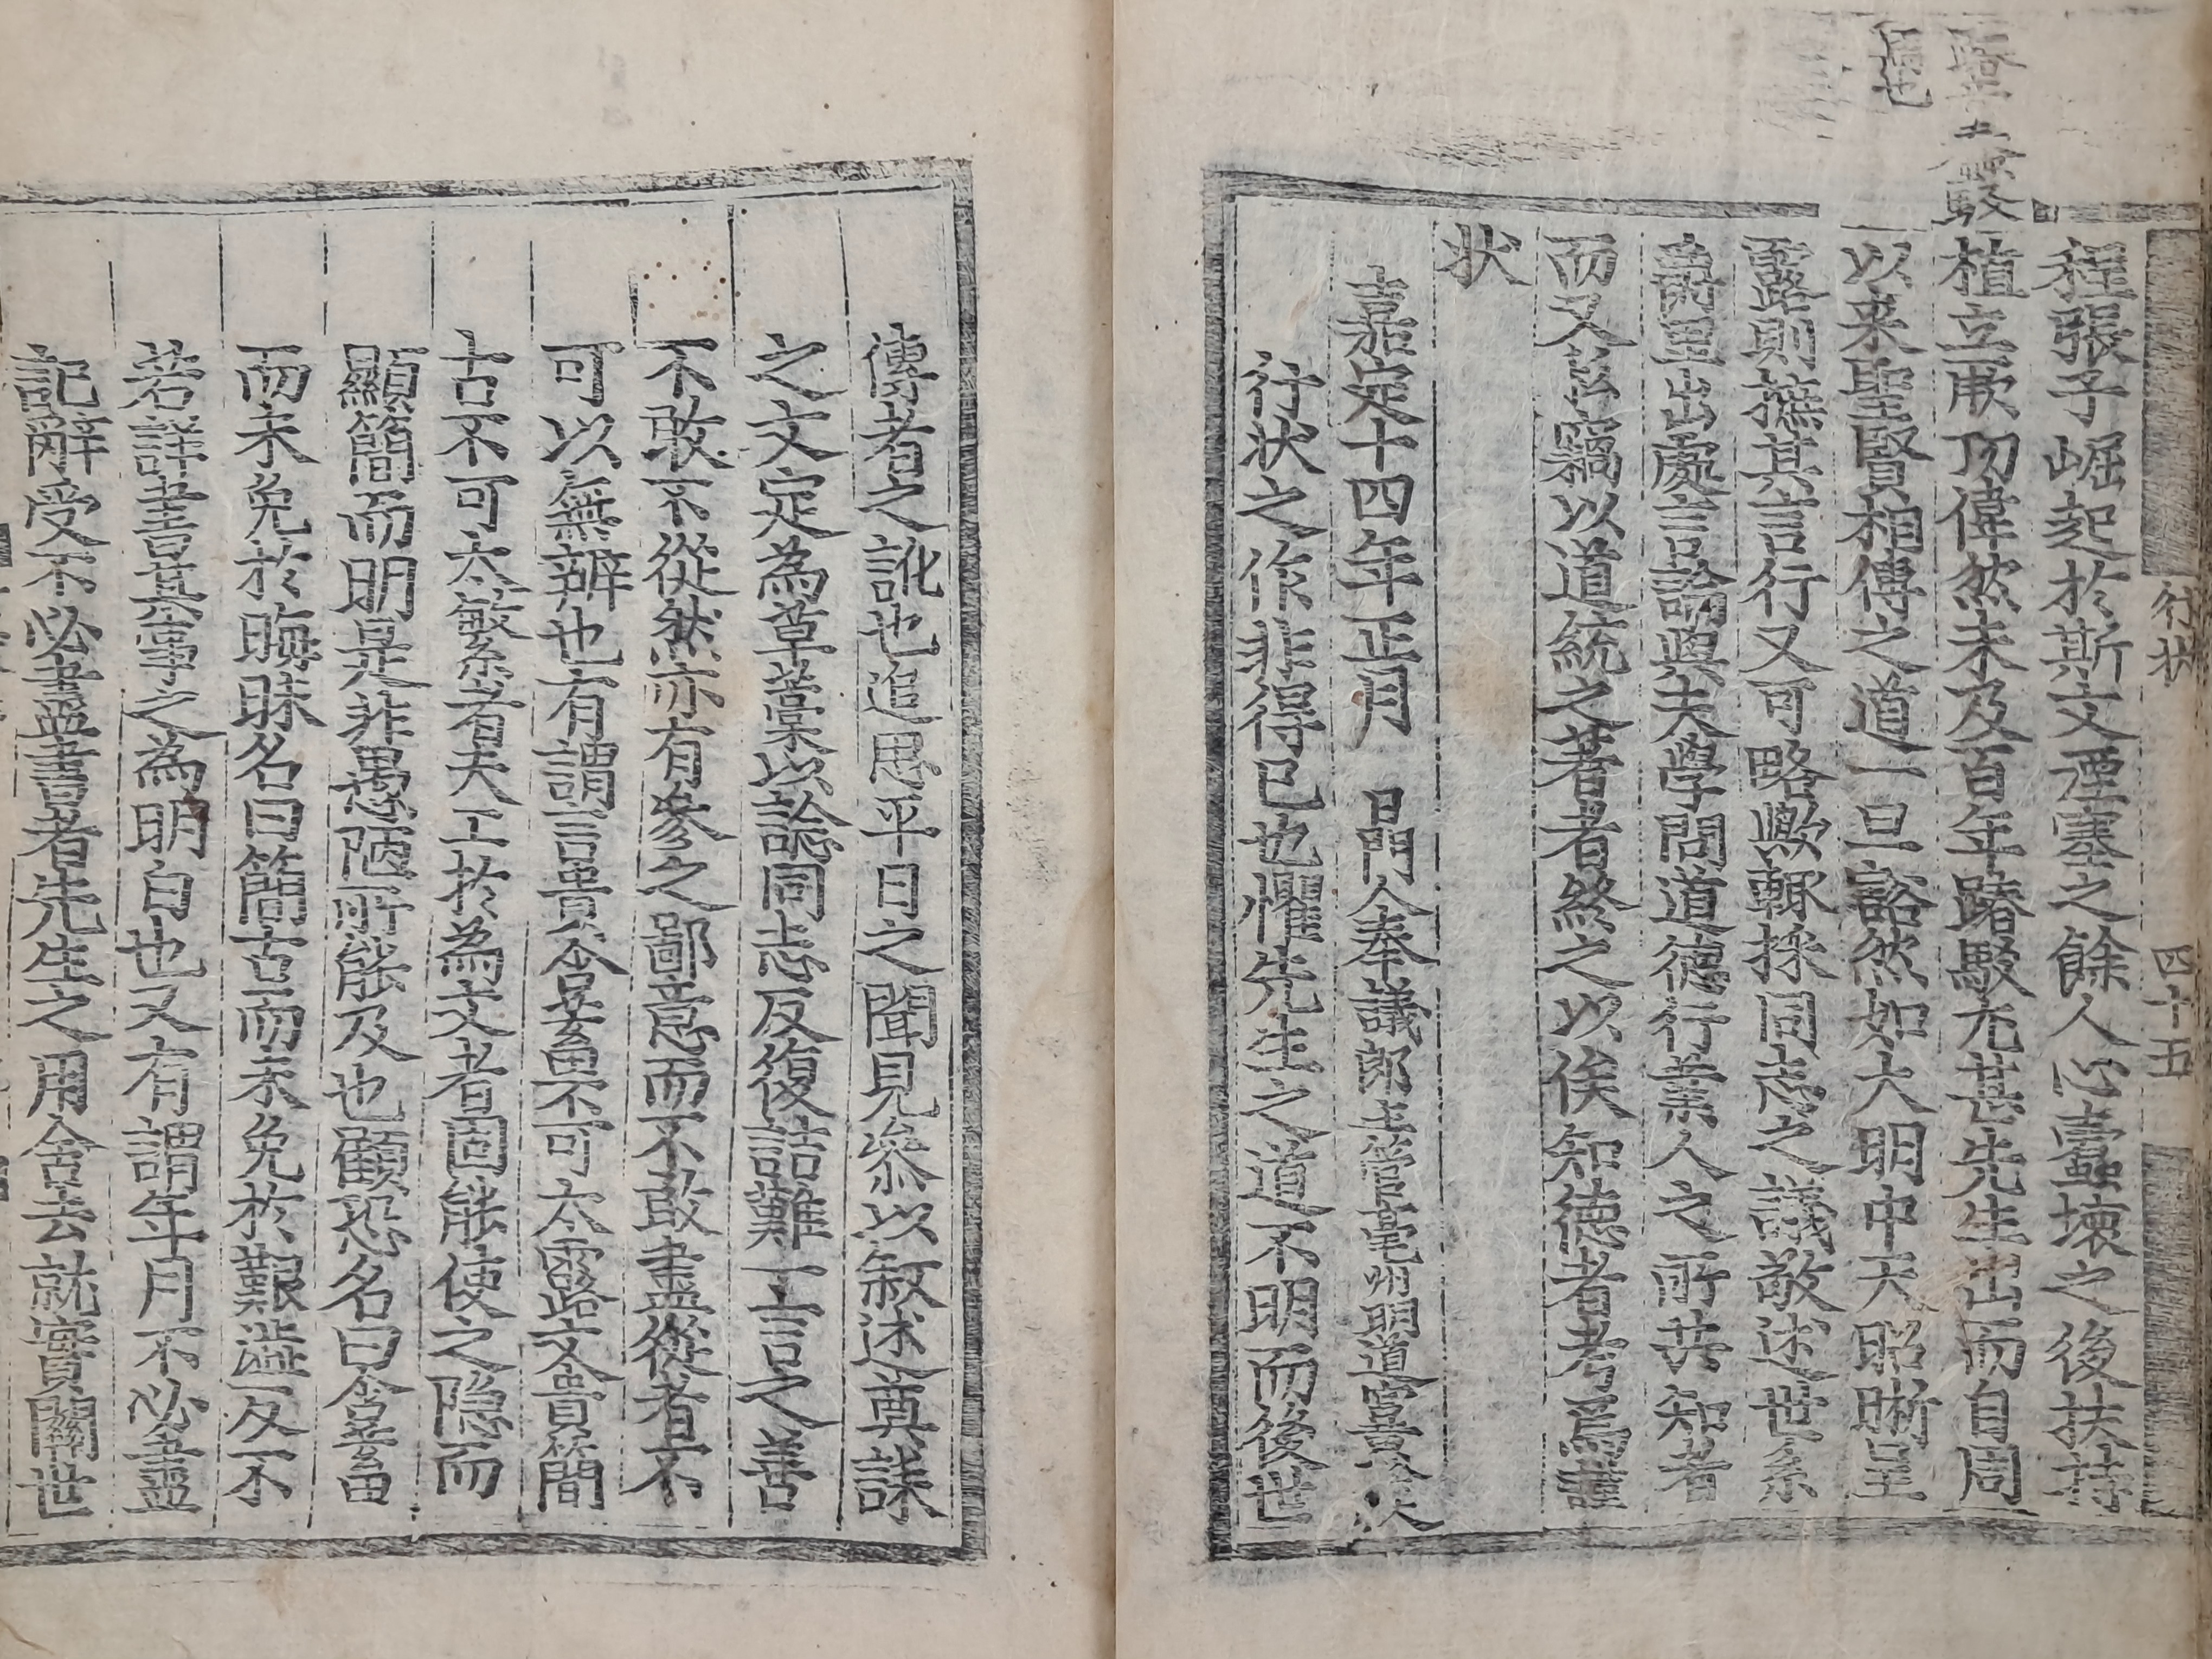 行狀 四十五
程張子崛起於斯文湮塞之餘人心蠹壞之後扶持
植立厥功偉然未及百年踳駁尤甚先生出而自周
以来聖賢相傳之道一旦豁然如大明中天昭晰呈
露則摭其言行又可略歟輒採同志之議敬述世系
爵里出處言論與夫學問道德行業人之所共知者
而又竊以道統之著者終之以俟知德者考焉謹
狀
嘉定十四年正月 日門人奉議郎主管亳州明道宮黃
行狀之作非得已也懼先生之道不明而後世
傳者之訛也追思平日之聞見叅以敘述奠誄
之文定為草藁以諗同志反復詰難一言之善
不敢不從然亦有參之鄙意而不敢盡從者不
可以無辨也有謂言貴含蓄不可太露文貴簡
古不可太繁者夫工於為文者固能使之隱而
顯簡而明是非愚陋所能及也顧恐名曰含蓄
而未免於晦昧名曰簡古而未免於艱澁反不
若詳書其事之為明白也又有謂年月不必盡
記辭受不必盡書者先生之用舍去就實關世